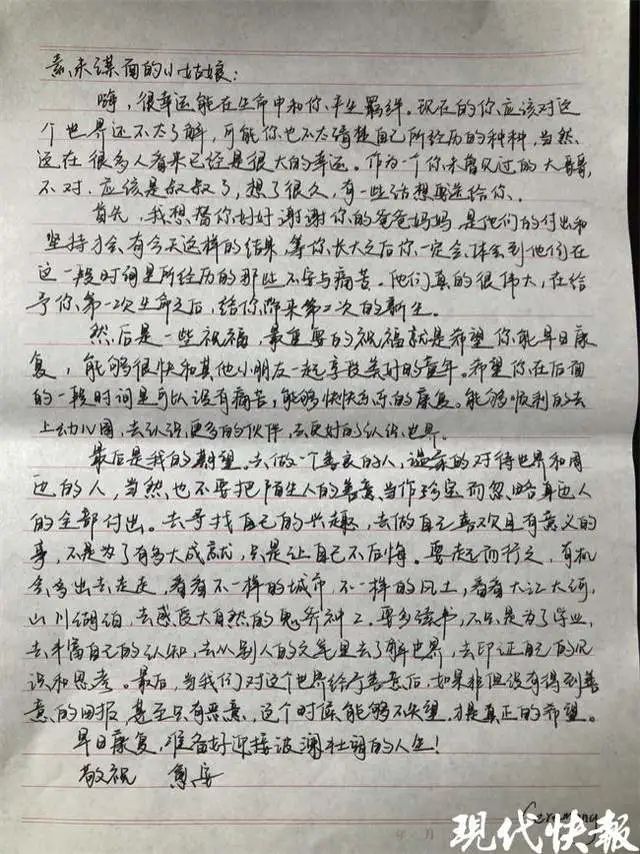 素未谋面的小姑娘:
嗨,很幸运能在生命中和你产生羁绊。现在的你应该对这
个世界还不太了解,可能你也不太清楚自己所经历的种种,当然,
这在很多人看来已经是很大的幸运。作为一个你未曾见过的大哥哥,
不对,应该是叔叔了,想了很久,有一些话想要送给你。
首先,我想替你好好谢谢你的爸爸妈妈,是他们的付出和
坚持才会有今天这样的结果,等你长大之后你一定会体会到他们在
这一段时间里所经历的那些不安与痛苦。他们真的很伟大,在给
予你第一次生命之后,给你带来第二次的新生。
然后是一些祝福,最重要的祝福就是希望你能早日康
复,能够很快和其他小朋友一起享受美好的童年。希望你在后面
的一段时间里可以没有病苦,能够快快乐乐的康复。能够顺利的去
上幼儿园,去认识更多的伙伴,去更好的认识世界。
最后是我的期望。去做一个善良的人,温柔的对待世界和周
边的人,当然也不要把陌生人的善意当作珍宝而忽略身边人
的全部付出。去寻找自己的兴趣,去做自己喜欢且有意义的
事,不是为了有多大成就,只是让自己不后悔。要起而行之,有机
会多出去走走,看看不一样的城市,不一样的风土,看看大江大河,
山川湖泊,去感受大自然的鬼斧神工。要多读书,不只是为了学业,
去丰富自己的认知,去从别人的文笔里去了解世界,去印证自己的见
识和思考。最后,当我们对这个世界给予善意后,如果非但没有得到善
意的回报,甚至只有恶意,这个时候能够不失望,才是真正的希望。
早日康复,准备好迎接波澜壮阔的人生!
敬祝
年 月
现代快报